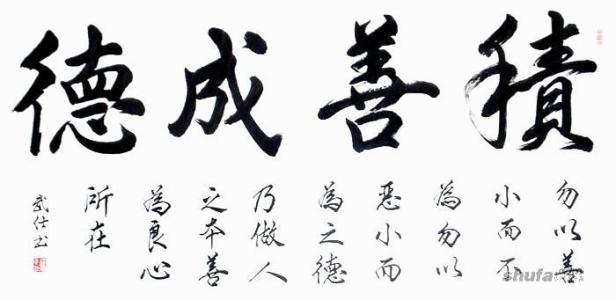 積善成德
勿以善
小而不
為勿以
惡小而
為之德
乃做人
之本善
為良心
所在
武仕书
shufa